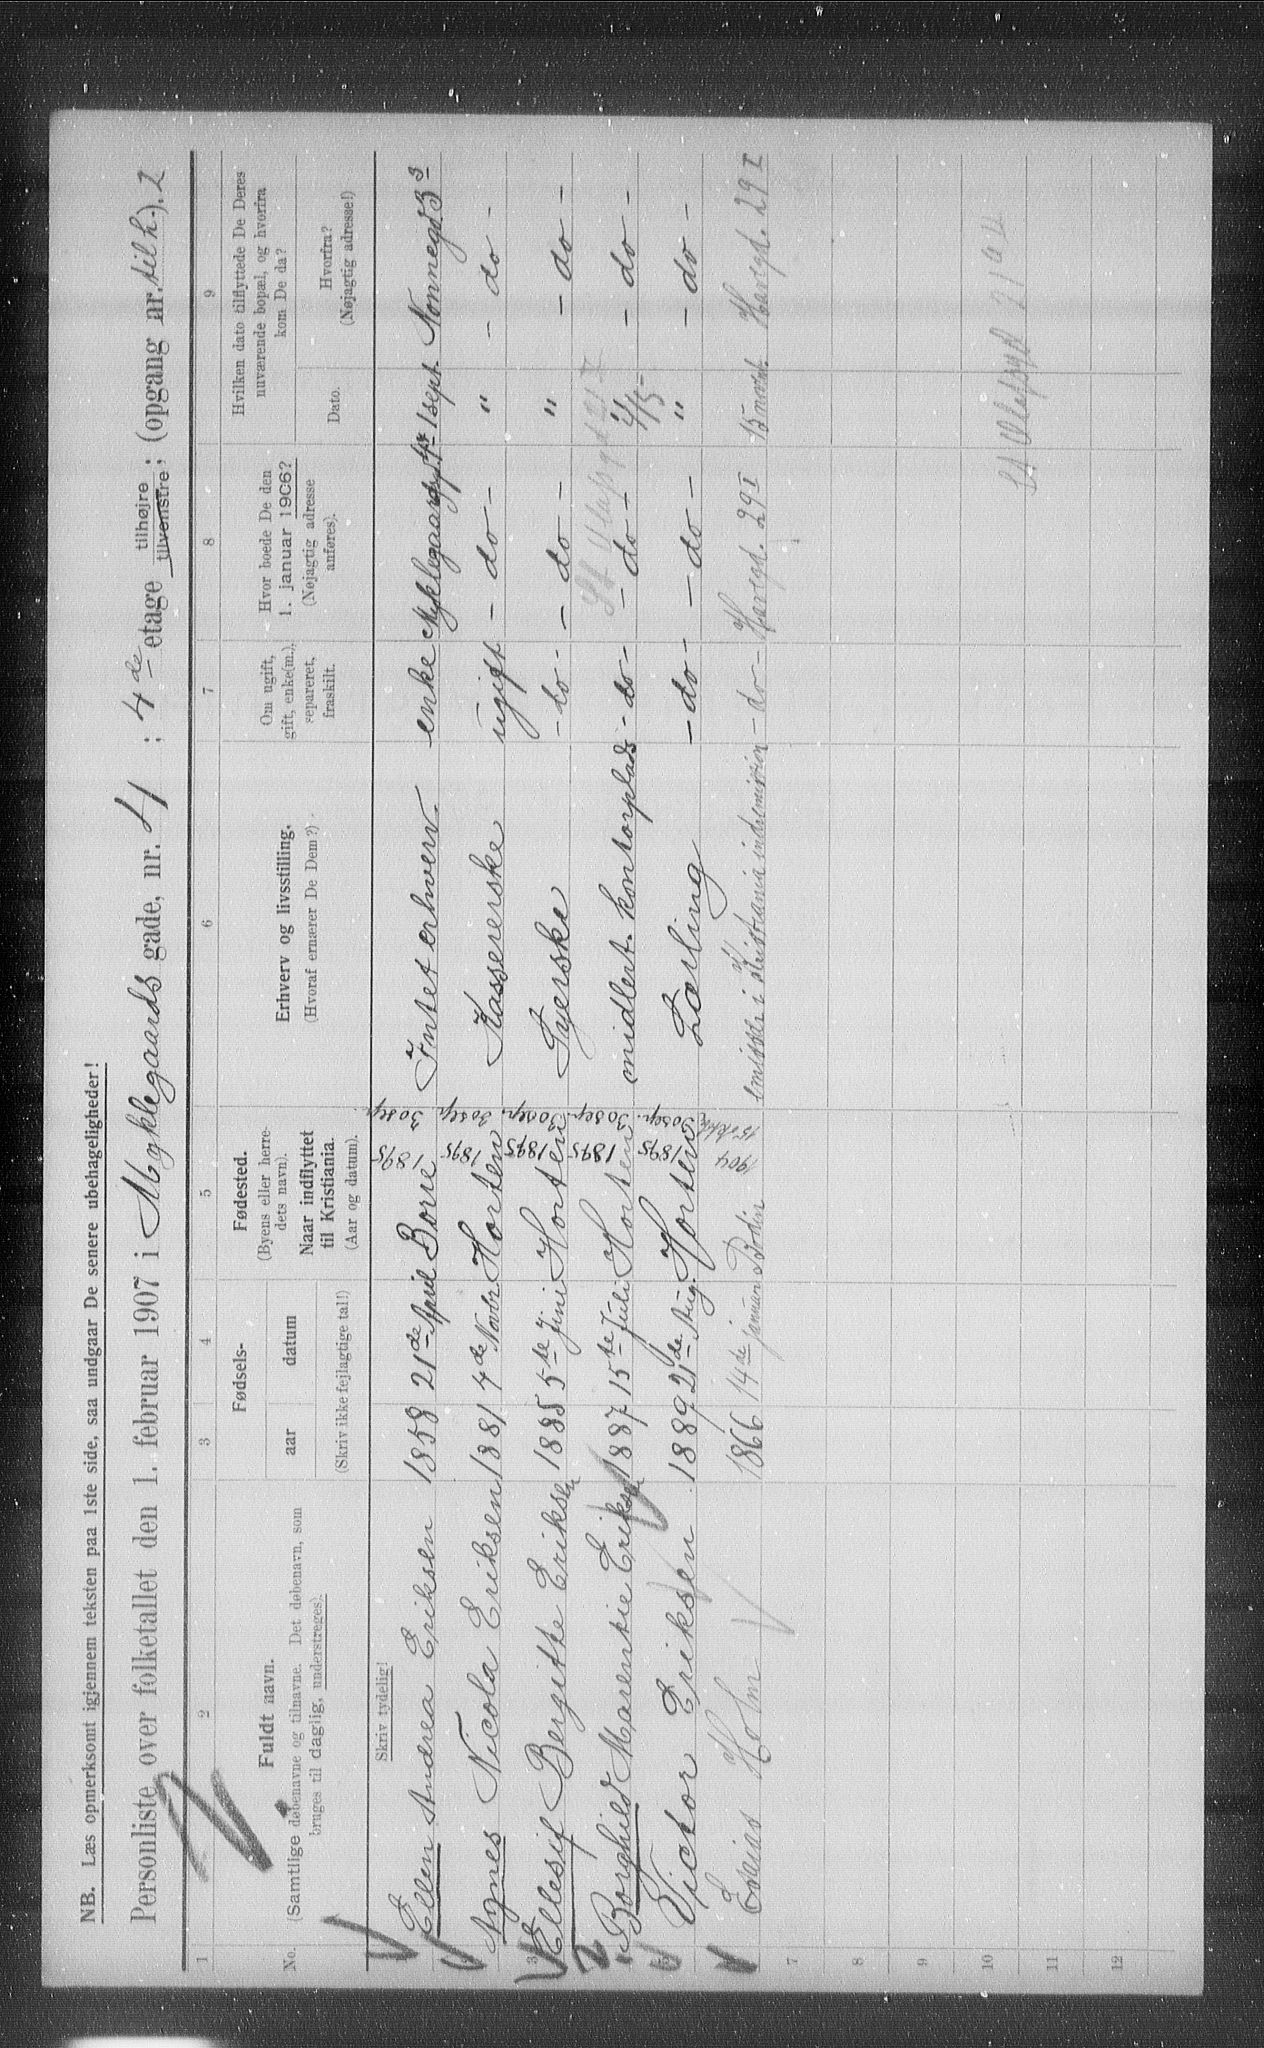 NB. Læs opmerksomt igjennem teksten paa 1ste side, saa undgaar De senere ubehageligheder!
Personliste over folketallet den 1. februar 1907 i Myklegaards gade, nr. 4 ; 4de etage tilhøjre tilvenstre; (opgang nr. til h.). 2
1 2 3 4 5 6 7 8 9
No.
Fuldt navn.
(Samtlige døbenavne og tilnavne. Det døbenavn, som
bruges til daglig, understreges).
Fødsels-
aar datum
(Skriv ikke fejlagtige tal!)
Fødested.
(Byens eller herre-
dets navn).
Naar indflyttet
til Kristiania.
(Aar og datum).
Erhverv og livsstilling.
(Hvoraf ernærer De Dem?)
Om ugift,
gift, enke(m.),
separeret,
fraskilt.
Hvor boede De den
1. januar 1906?
(Nøjagtig adresse
anføres).
Hvilken dato tilflyttede De Deres
nuværende bopæl, og hvorfra
kom De da?
Dato.
Hvorfra?
(Nøjagtig adresse!)
Skriv tydelig!
Ellen Andrea Eriksen 1858 21de April Borre 1895 30 sep. Intet erhverv. enke Myklegaardsg 1 sept. Nonnegd 3
Agnes Nicola Eriksen 1881 7de Novbr Horten 1895 30 sep. Kassererske ugift - do - " - do -
3 Ellesif Bergitte Eriksen 1885 5te Juni Horten 1895 30 sep. Syerske - do - - do - " - do -
St Olafsgd 21 I
Borghild Marentie Eriksen 1887 15te Juli Horten 1895 30 sep. midlert. kontorplads - do - - do - " - do -
5 Victor Eriksen 1889 21de Aug. Horten 1895 30 sep. Lærling - do - - do - " - do -
Esaias Holm 1866 14de januar Bodin 1904 15 oktbr i Kristiania indremission - do - Havegd. 29 I 15 novbr. Havegd. 29 I
7
8
9
10
St Olafsgd 21
11
12